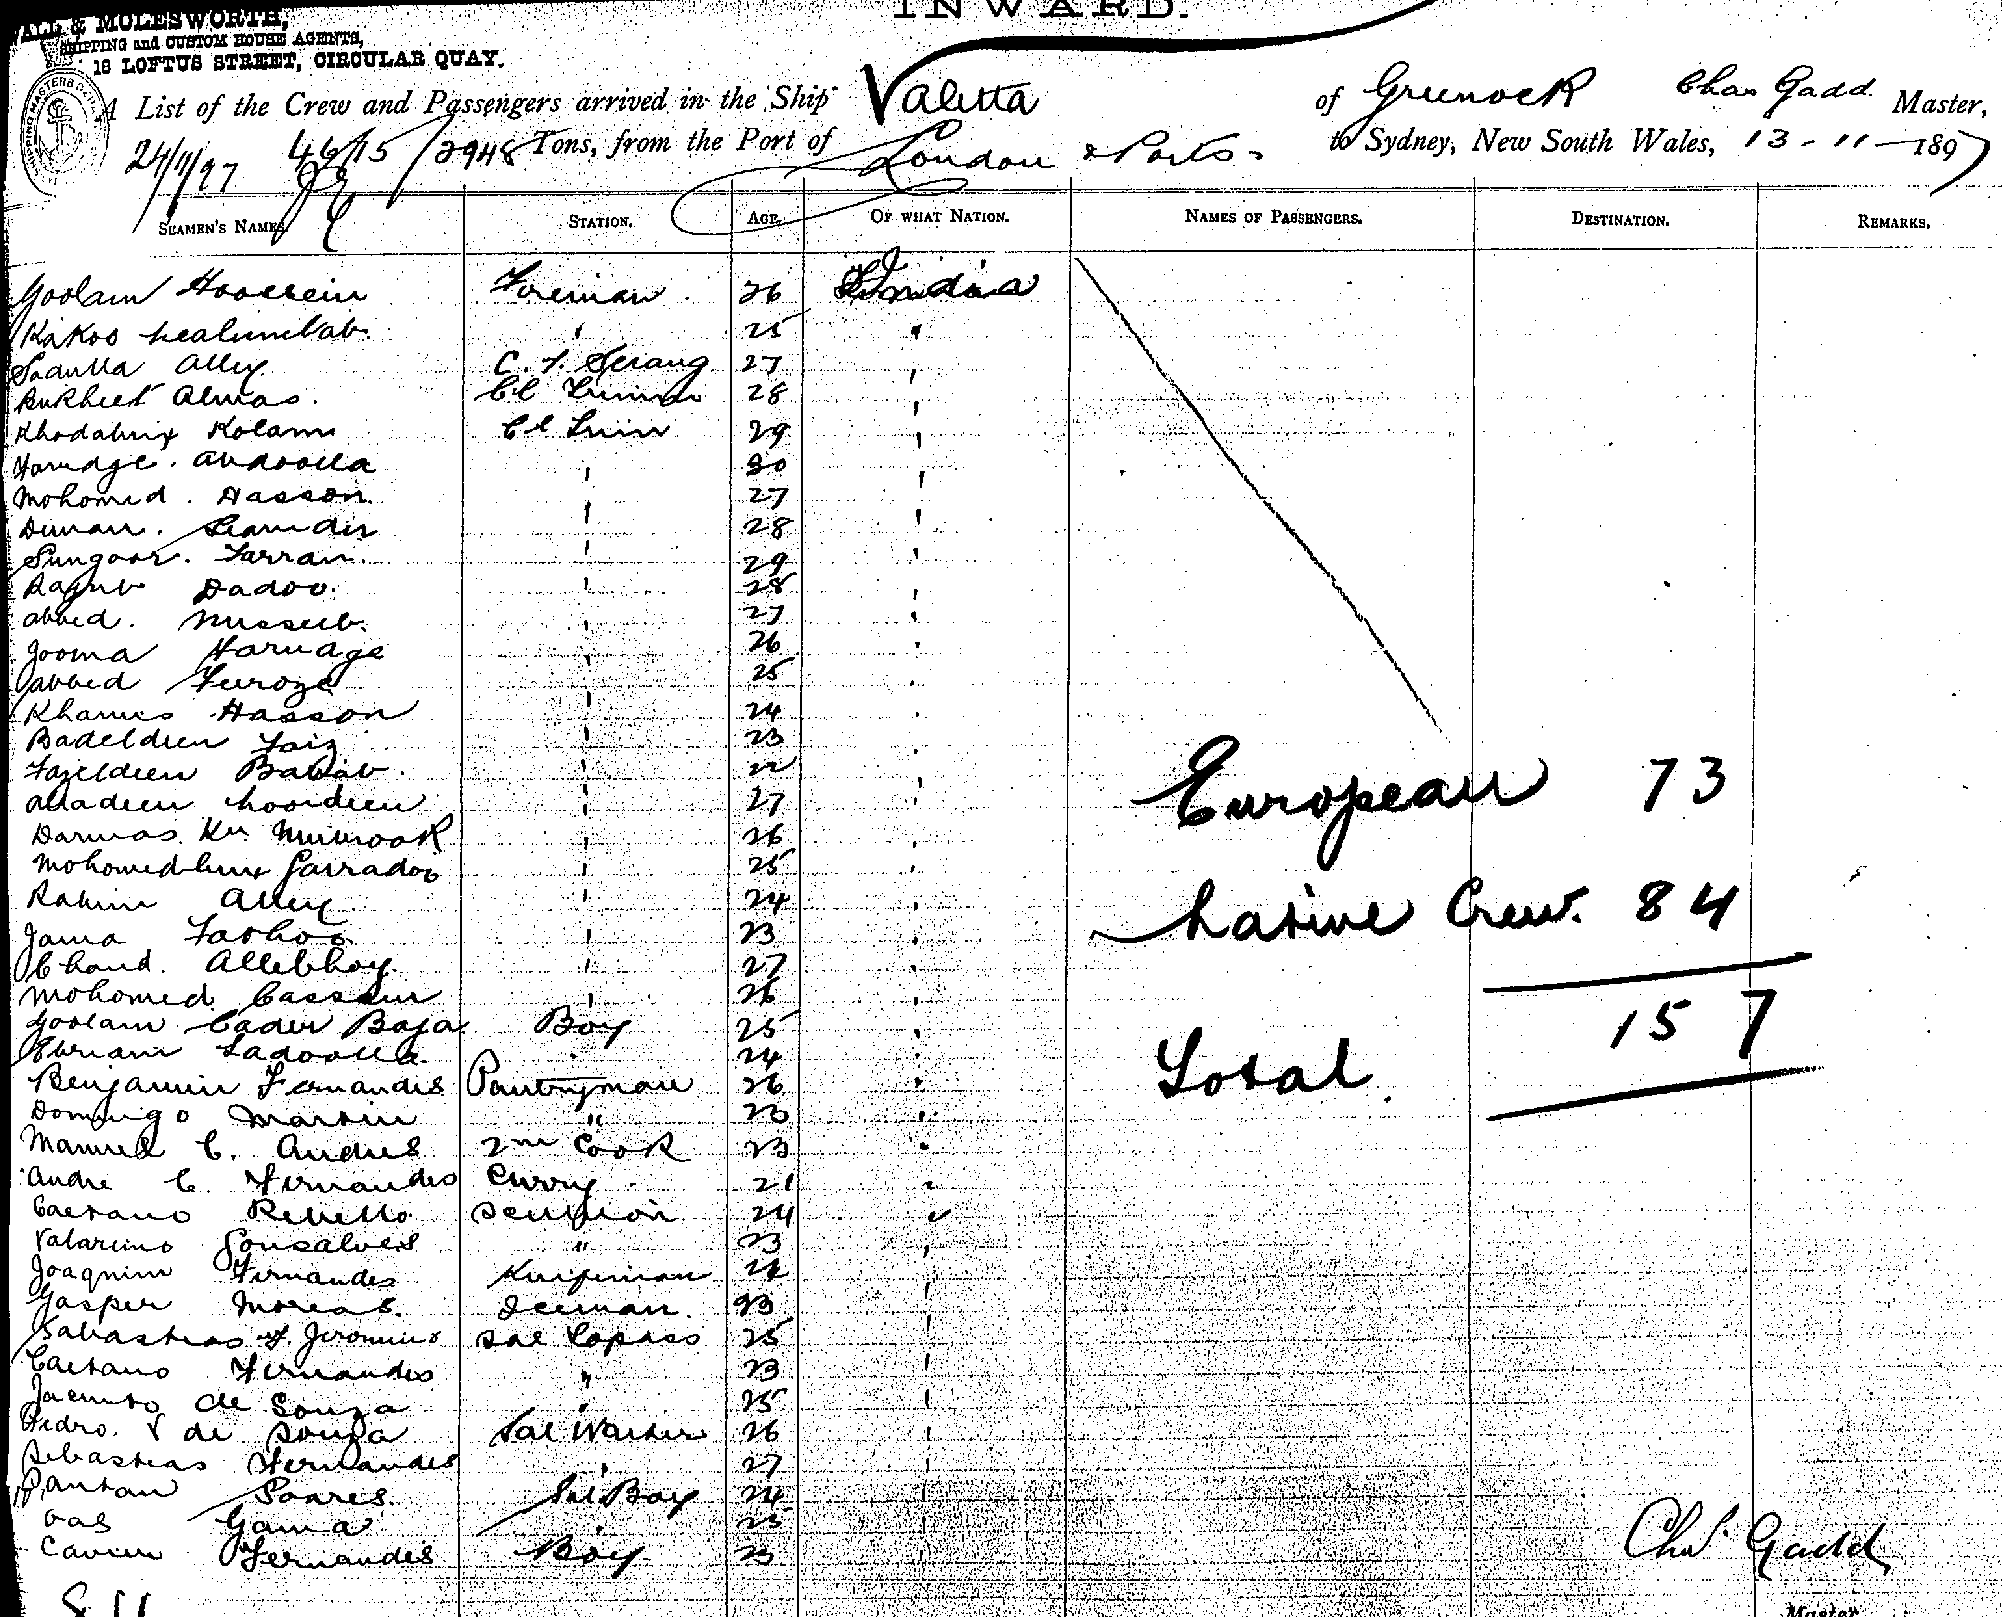 INWARD.
ALL & MOLESWORTH,
SHIPPING and CUSTOM HOUSE AGENTS,
18 LOFTUS STREET, CIRCULAR QUAY.
A List of the Crew and Passengers arrived in the Ship Valetta of Greenock Chas Gadd Master,
24/11/97 4615/2948 Tons, from the Port of London & Ports to Sydney, New South Wales, 13-11-1897
SEAMEN'S NAMES. STATION. AGE. OF WHAT NATION. NAMES OF PASSENGERS. DESTINATION. REMARKS.
Goolam Hoossein Fireman 26 India
Kakoo 25 "
Sadulla Alley C. F. Serang 27 "
Bukheet Almas. 28 "
Khodabux 29 "
Abdoolla 30 "
Mohomed. Hasson 27 "
28 "
Sungoor. Farran. 29 "
Rajub Dadoo. 28 "
Abbed. Musseeb. 27 "
Jooma 26 "
Abbed Feroze 25 "
Khamis Hasson 24 "
Badeldeen Faiz 23 "
Fazeldeen 22 "
Alladeen Noordeen 27 "
26 "
Mohomedbux 25 "
Rahim Alley 24 "
Jama 23 "
Chand. Allebhoy 27 "
Mohomed Cassim 26 "
Goolam Cader Boy 25 "
24 "
Benjamin Fernandes Pantryman 26 "
Domingo Martin " 23 "
Manuel C. Andres 2nd Cook 23 "
Andre C. Fernandes Curry 21 "
Caetano Rebello Scullion 24 "
Valarino Gonsalves " 23 "
Joaquim Fernandes Knifeman 24 "
Gasper Moreas. 23 "
Sabastiao F. Jeronimo Sal Topass 25 "
Caetano Fernandes " 23 "
Jacinto de Souza " 25 "
Pedro. de Souza Sal Washer 26 "
Sebastiao Fernandes " 27 "
Soares. Sal Boy 24 "
Gama " 25 "
Fernandes Boy 23 "
European 73
Native Crew. 84
Total 157
Chas. Gadd
Master